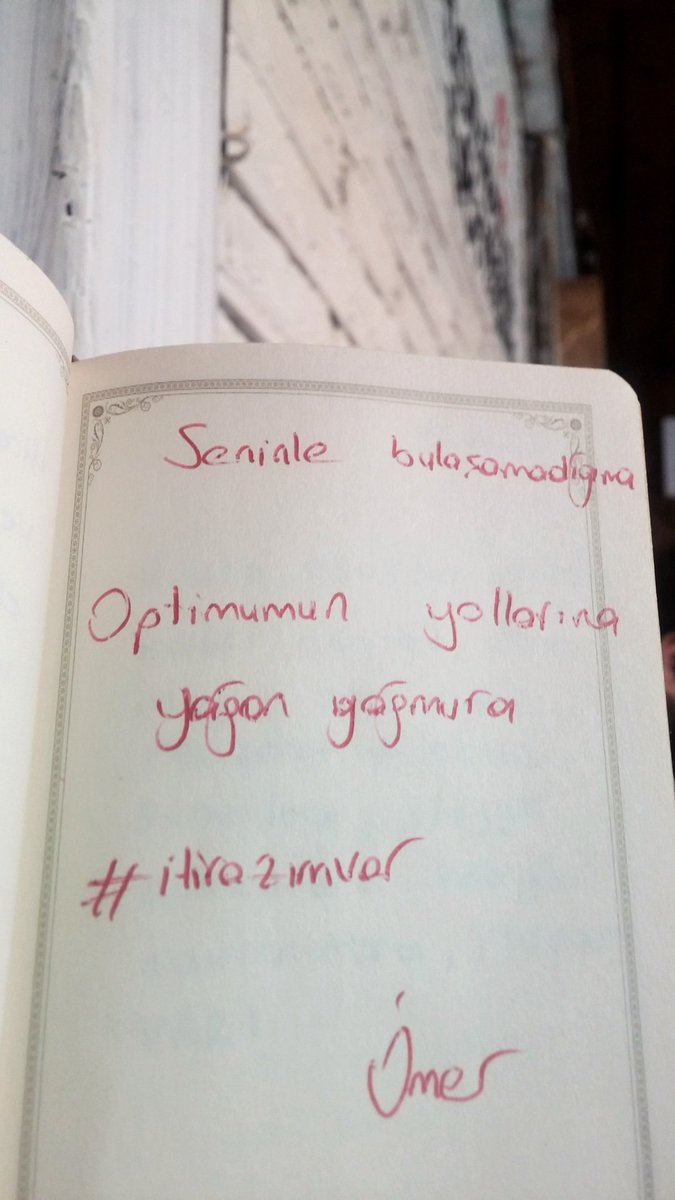 Seninle bulaşamadığıma
Optimumun yollarına
yağan yağmura
#itirazımvar
Ömer